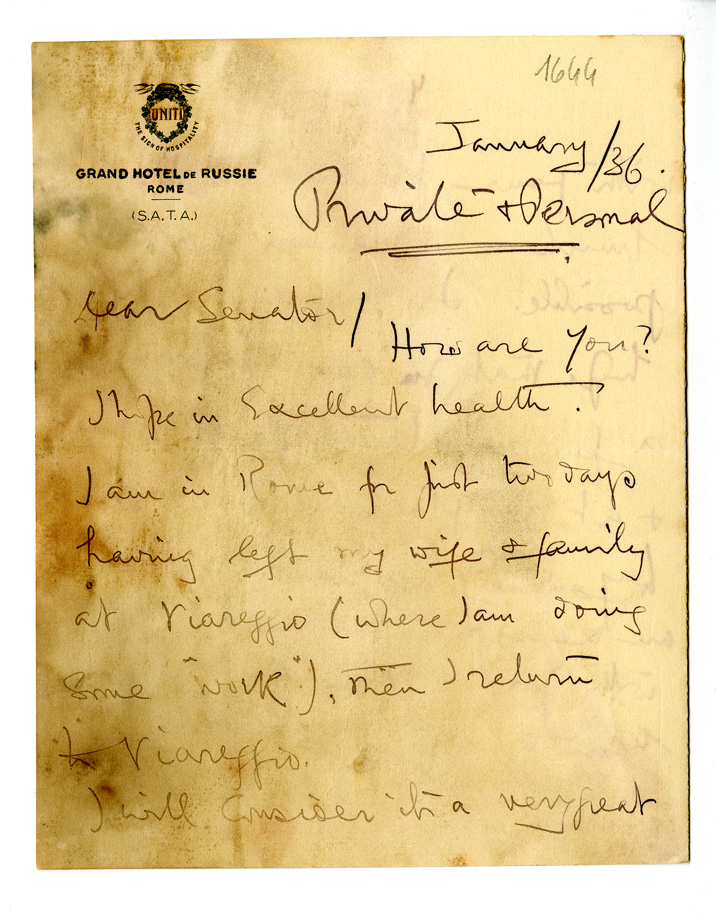 1644
UNITI
THE SIGN OF HOSPITALITY
GRAND HOTEL DE RUSSIE
ROME
(S.A.T.A.)
January/36.
Private & Personal
Dear Senator/
How are you?
I hope in Excellent health.
I am in Rome for just two days
having left my wife & family
at Viareggio (where I am doing
some "work"), then I return
to Viareggio.
I will consider it a very great